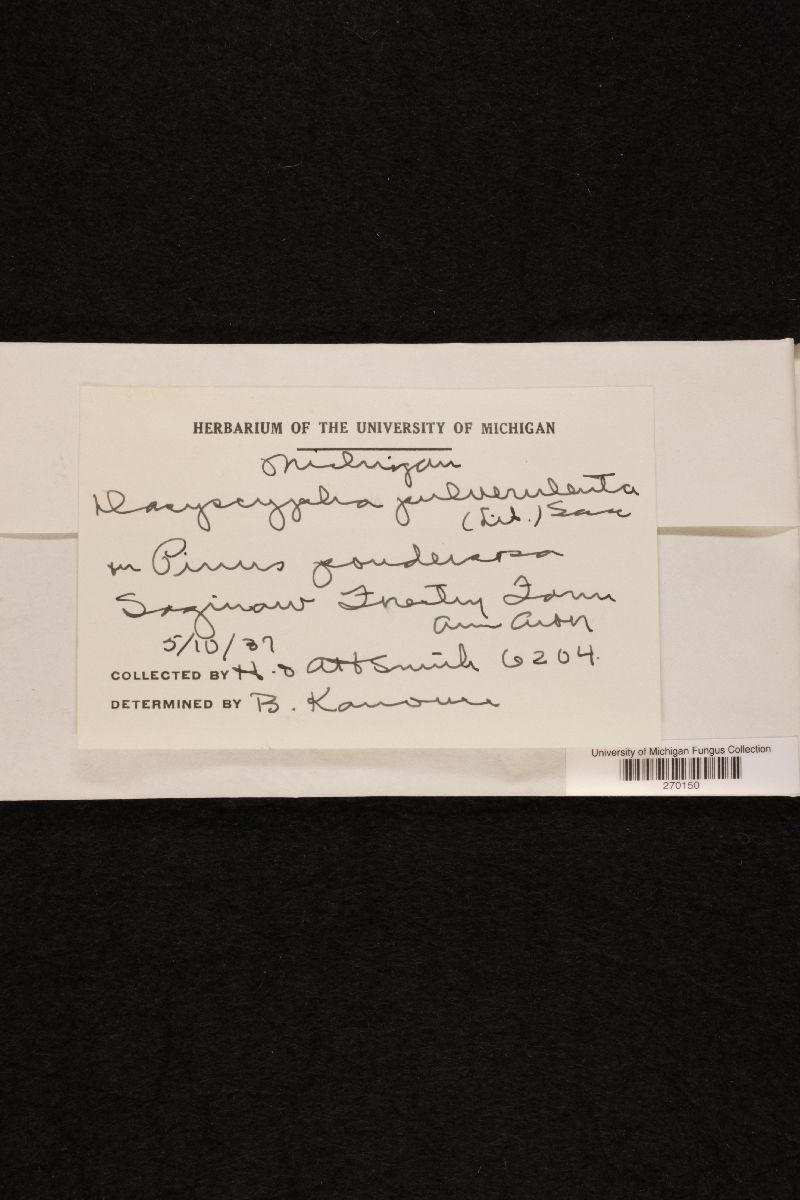 HERBARIUM OF THE UNIVERSITY OF MICHIGAN
Michigan
Dasyscypha pulverulenta
(Lib.) Sacc
on Pinus ponderosa
Saginaw Forestry Farm
Ann Arbor
5/10/37
COLLECTED BY H. & AH Smith 6204.
DETERMINED BY B. Kanouse
University of Michigan Fungus Collection
270150